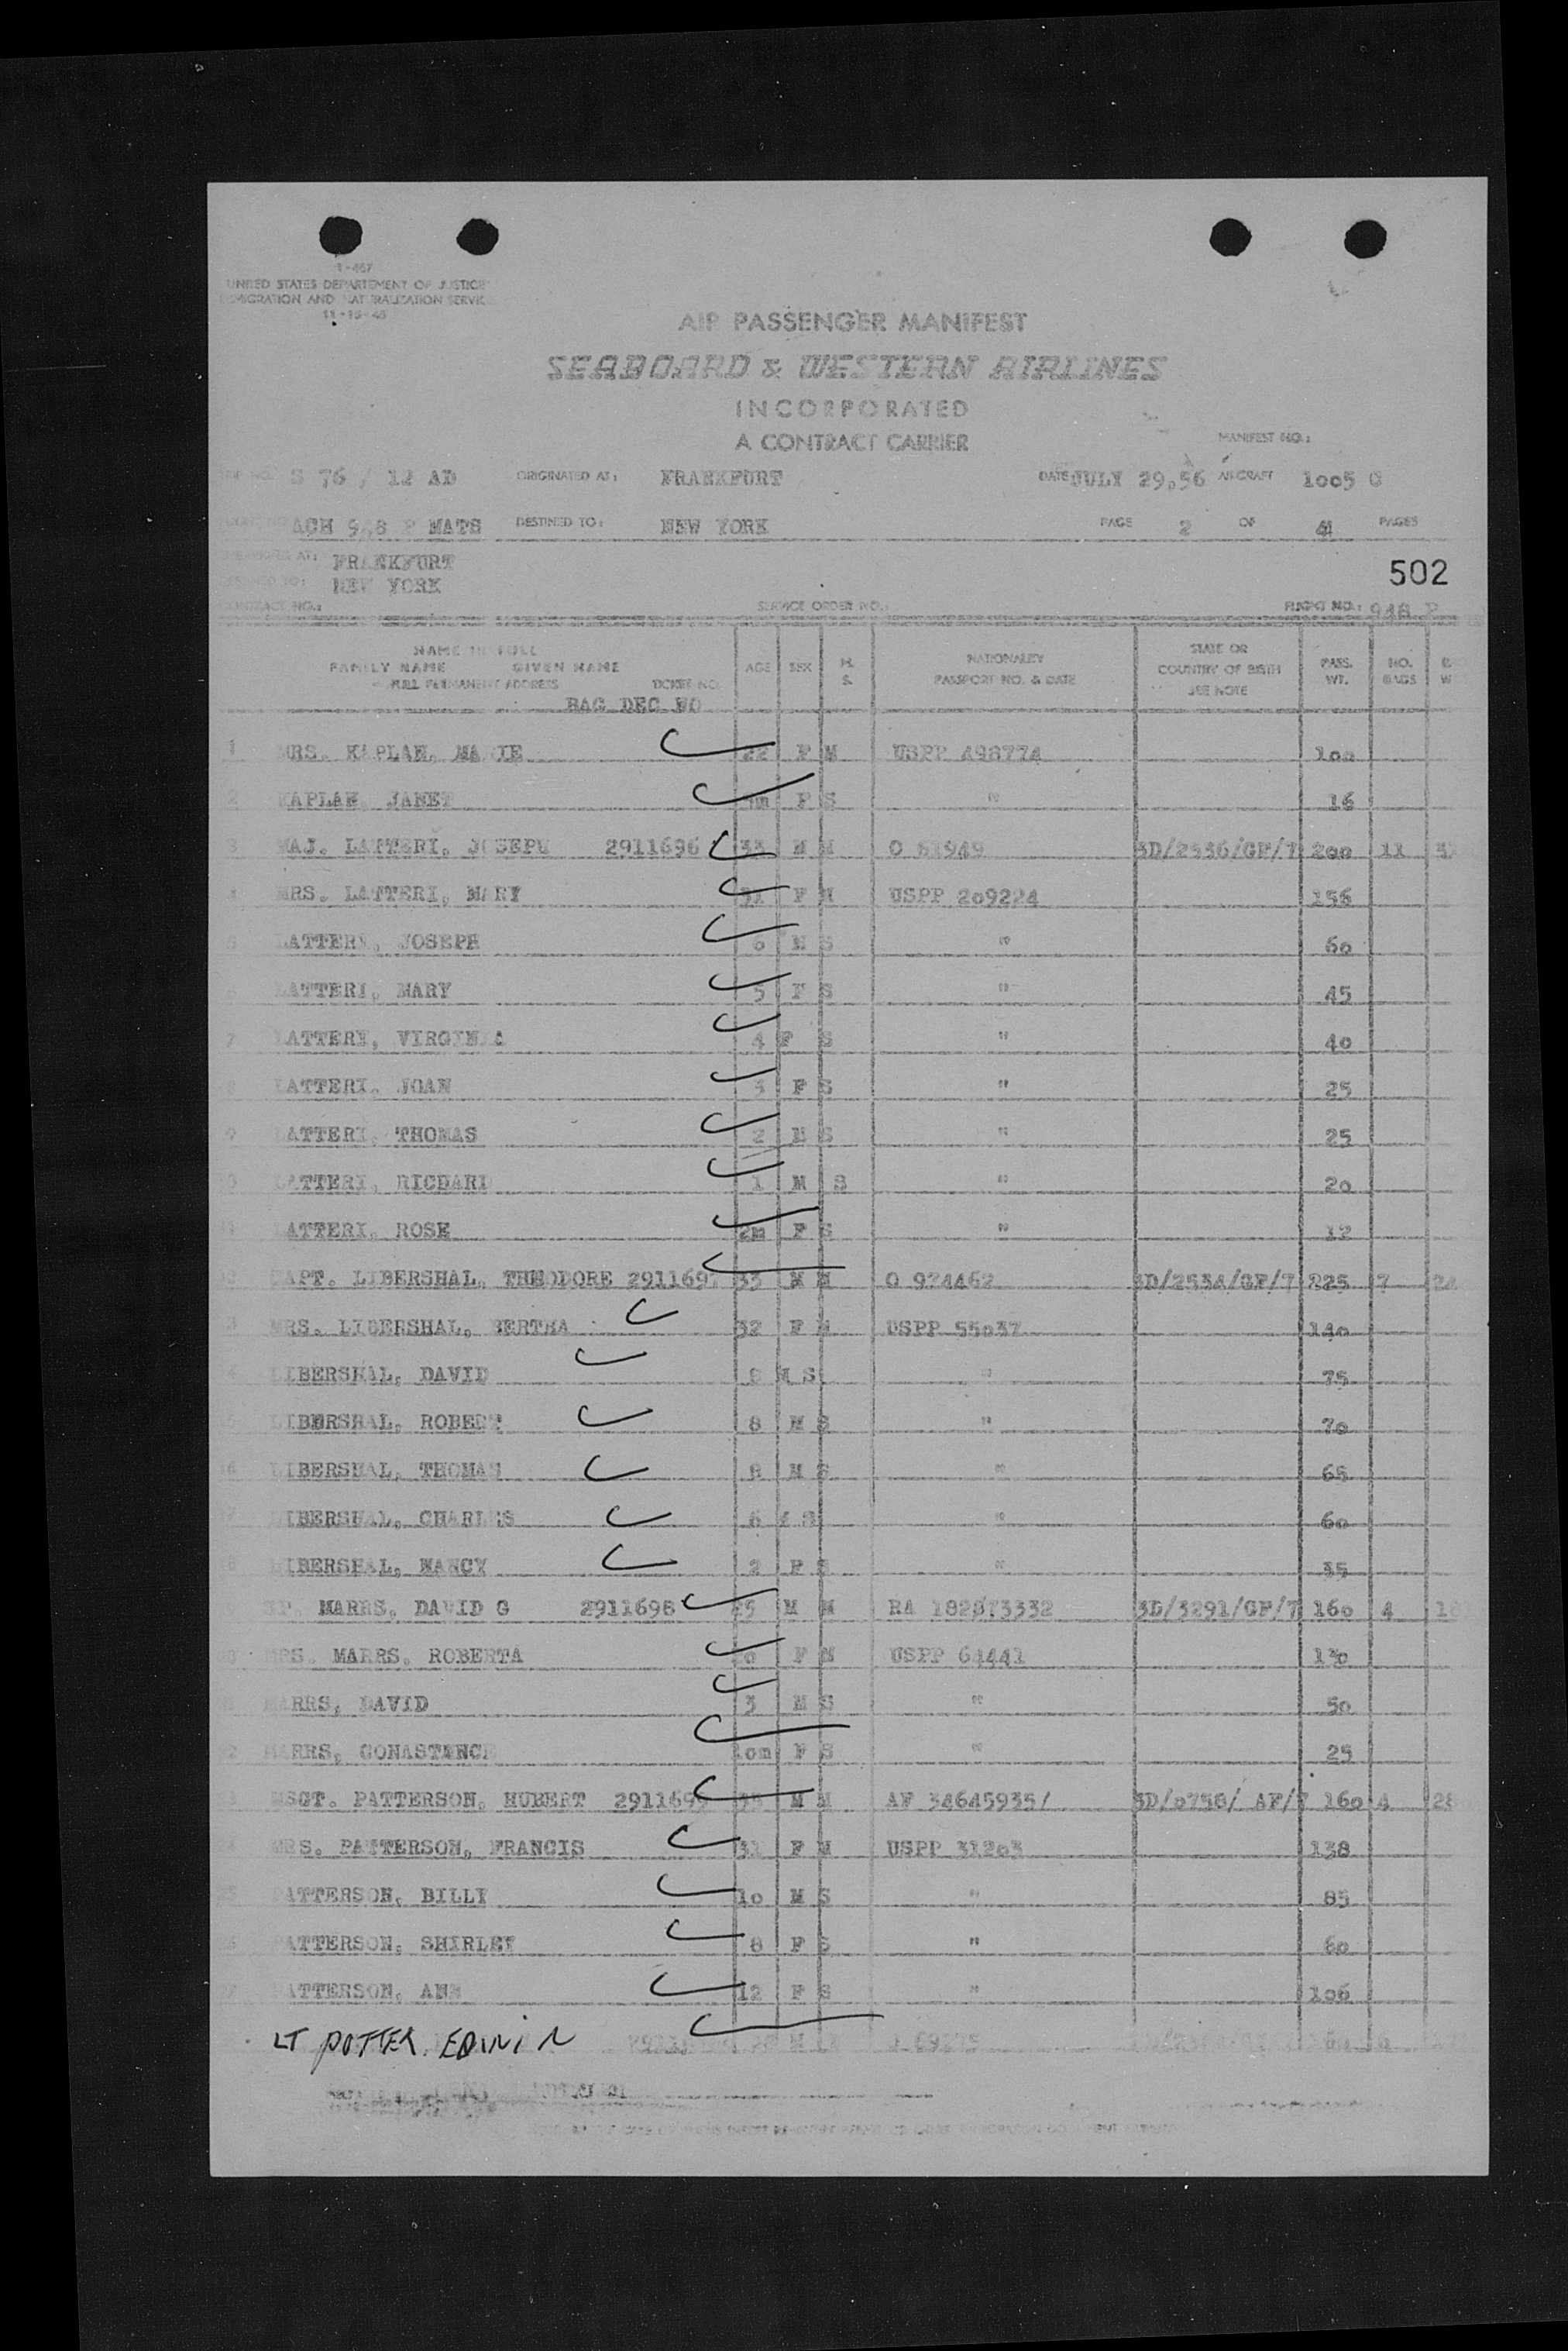 I-467
UNITED STATES DEPARTEMENT OF JUSTICE
IMMIGRATION AND NATURALIZATION SERVICE
11-15-45
AIR PASSENGER MANIFEST
SEABOARD & WESTERN AIRLINES
INCORPORATED
A CONTRACT CARRIER
MANIFEST NO.:
S 76 / 12 AD ORIGINATED AT: FRANKFURT DATE JULY 29.56 AIRCRAFT 1005 G
ACH 948 P MATS DESTINED TO: NEW YORK PAGE 2 OF 4 PAGES
FRANKFURT
502
NEW YORK
CONTRACT NO.: SERVICE ORDER NO.: FLIGHT NO.: 948 P
NAME IN FULL
FAMILY NAME GIVEN NAME AGE SEX M. S. NATIONALITY PASSPORT NO. & DATE STATE OR COUNTRY OF BIRTH SEE NOTE PASS. WT. NO. BAGS
FULL PERMANENT ADDRESS TICKET NO.
BAG DEC NO
1 MRS. KAPLAN, MARIE 22 F M USPP 498774 100
2 KAPLAN, JANET F S " 16
3 MAJ. LATTERI, JOSEPH 2911696 33 M M O 61949 3D/2536/GF/7 200 11
4 MRS. LATTERI, MARY 31 F M USPP 209224 156
5 LATTERI, JOSEPH 6 M S " 60
LATTERI, MARY 5 F S " 45
7 LATTERI, VIRGINIA 4 F S " 40
LATTERI, JOAN 3 F S " 25
9 LATTERI, THOMAS 2 M S " 25
LATTERI, RICHARD 1 M S " 20
LATTERI, ROSE 2m F S " 12
CAPT. LIBERSHAL, THEODORE 2911697 33 M M O 924462 3D/2534/GF/7 225 7
MRS. LIBERSHAL, BERTHA 32 F M USPP 55037 140
LIBERSHAL, DAVID M S " 75
LIBERSHAL, ROBERT 8 M S " 70
LIBERSHAL, THOMAS 8 M S " 65
LIBERSHAL, CHARLES 6 M S " 60
LIBERSHAL, NANCY 2 F S " 35
SP. MARRS, DAVID G 2911698 25 M M RA 182873332 3D/3291/GF/7 160 4
MRS. MARRS, ROBERTA F M USPP 64441 130
MARRS, DAVID 3 M S " 50
MARRS, CONASTENCE 10m F S " 25
MSGT. PATTERSON, HUBERT 2911699 M M AF 34645935/ 3D/0758/ AF/7 160 4 28
MRS. PATTERSON, FRANCIS 31 F M USPP 31203 138
PATTERSON, BILLY 10 M S " 85
PATTERSON, SHIRLEY 8 F S " 60
PATTERSON, ANN 12 F S " 106
LT POTTER, EDWIN